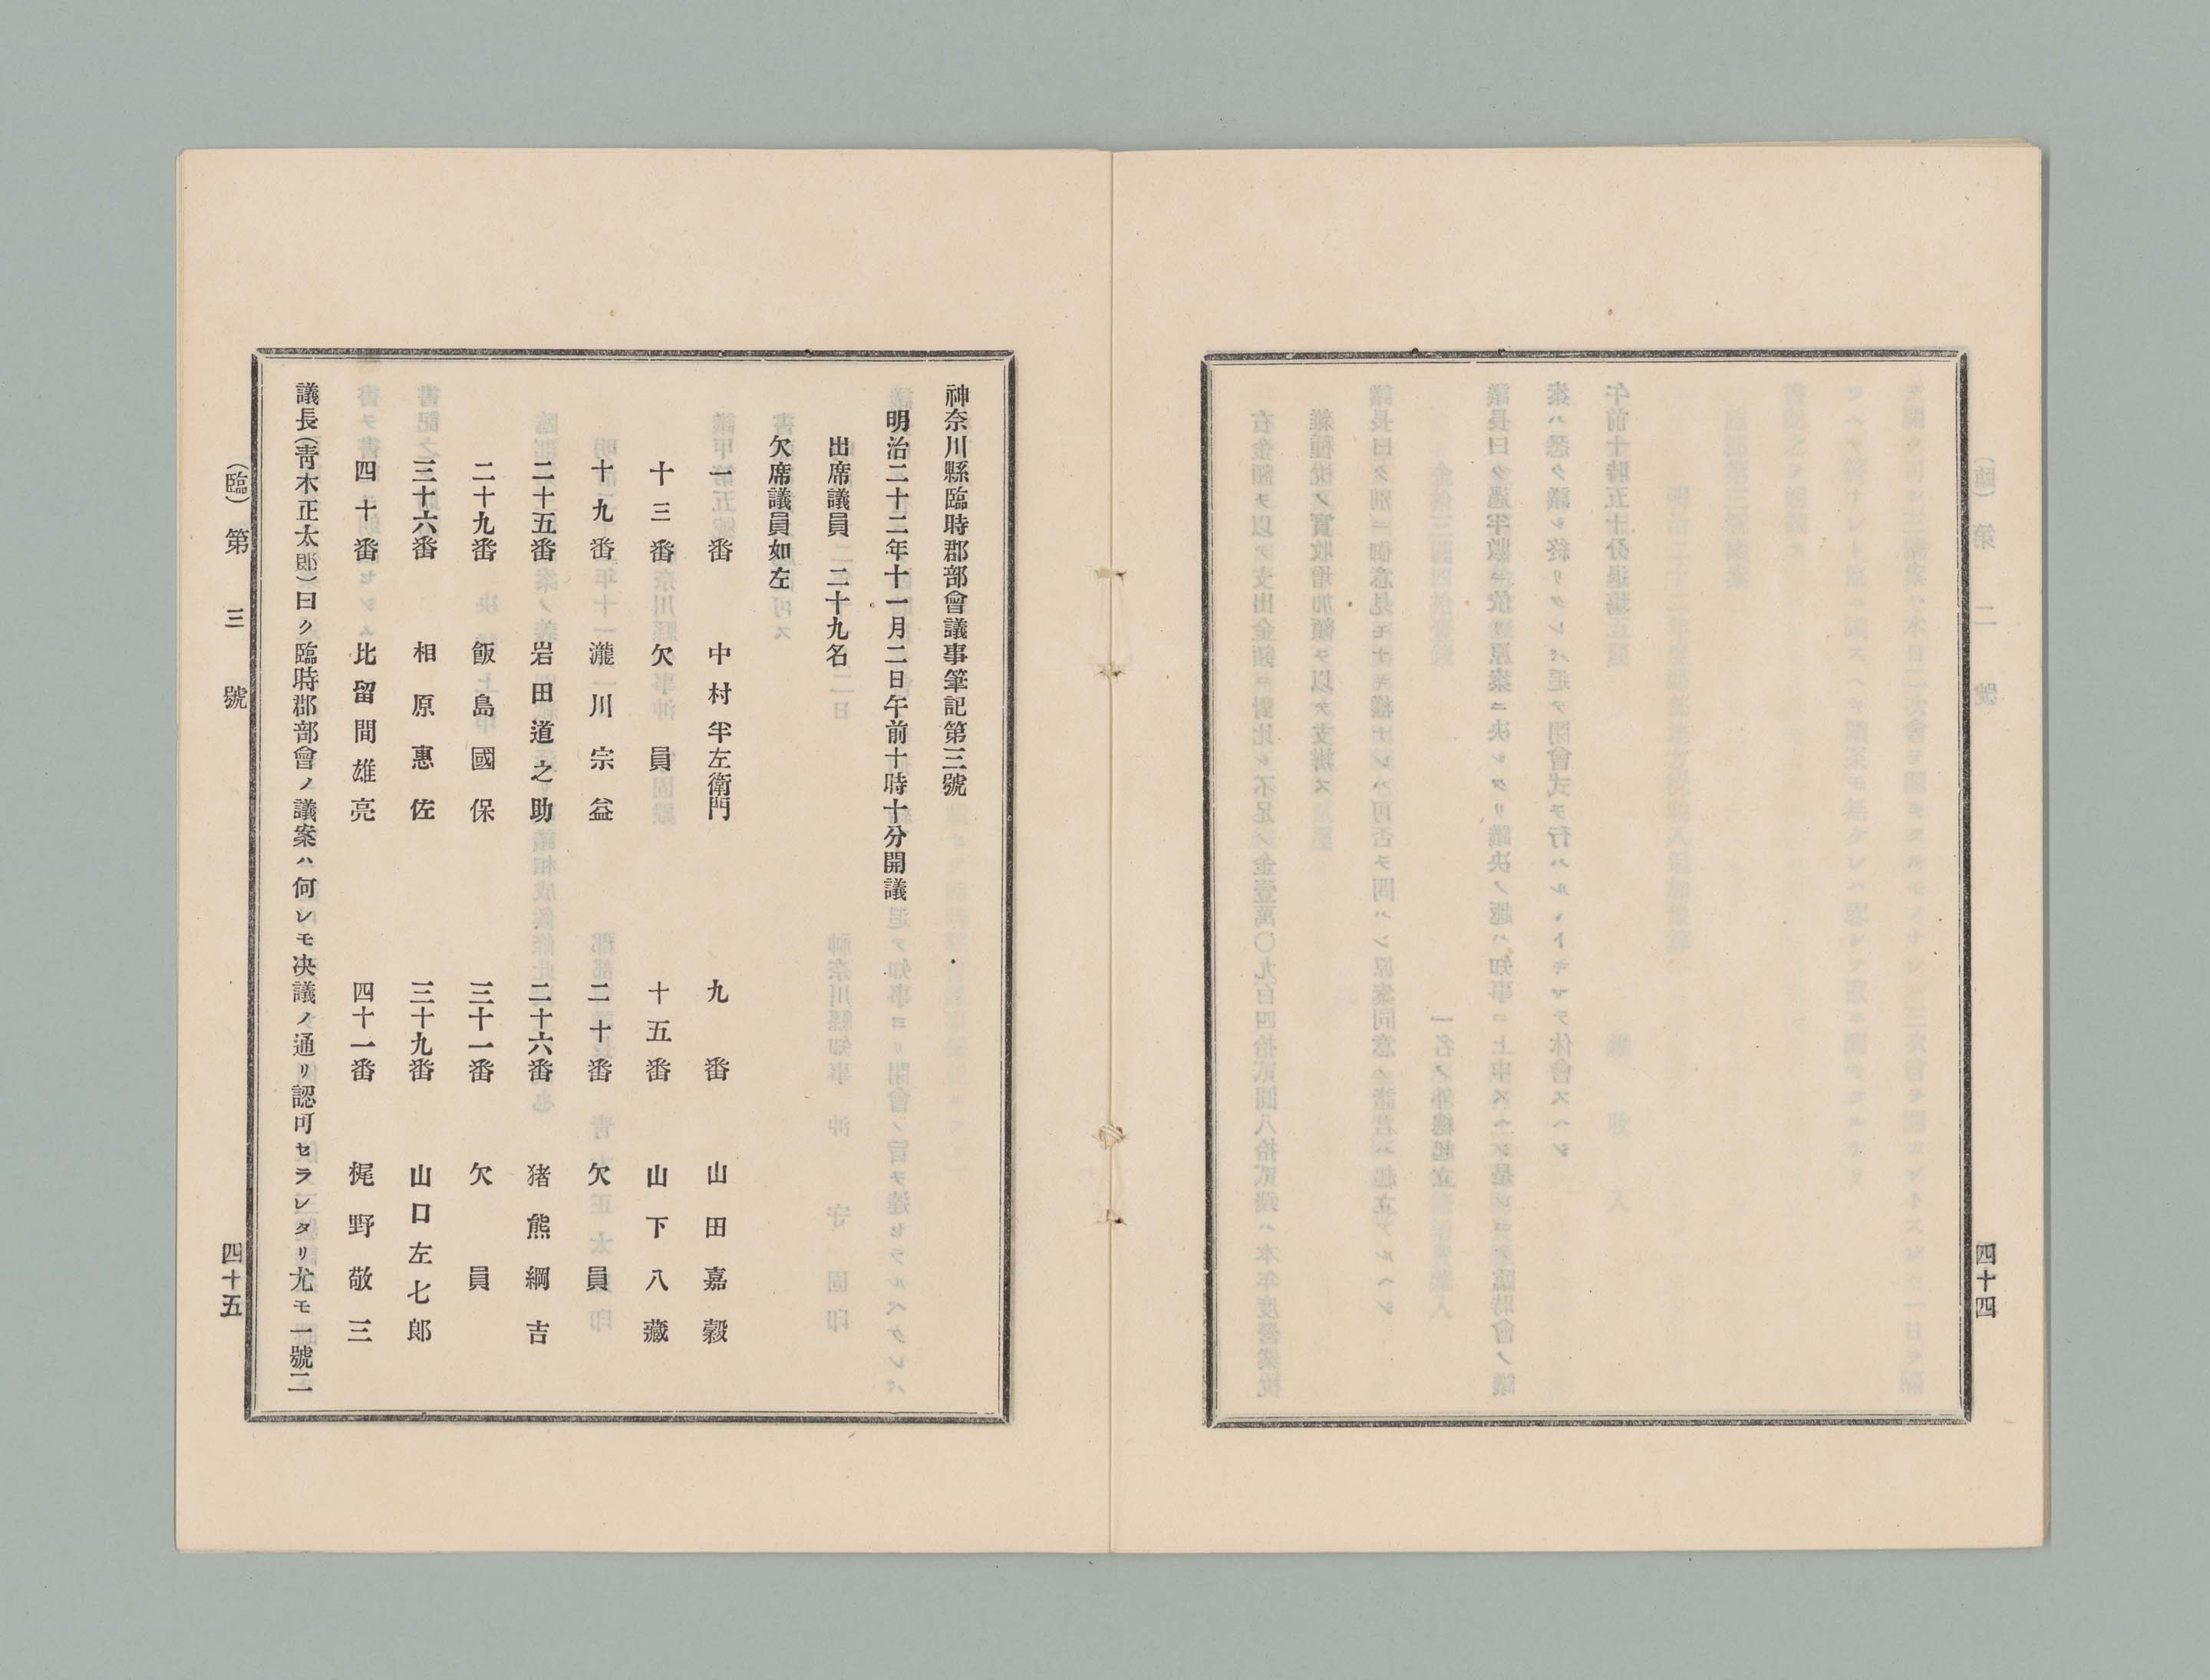 四十四
神奈川縣臨時郡部會議事筆記第三號
明治二十二年十一月二日午前十時十分開議
出席議員　二十九名
欠席議員如左
一番　中村半左衞門　九番　山田嘉穀
十三番　欠員　十五番　山下八藏
十九番　瀧川宗益　二十番　欠員
二十五番　岩田道之助　二十六番　猪熊綱吉
二十九番　飯島國保　三十一番　欠員
三十六番　相原惠佐　三十九番　山口左七郎
四十番　比留間雄亮　四十一番　梶野敬三
議長（靑木正太郎）曰ク臨時郡部會ノ議案ハ何レモ决議ノ通リ認可セラレタリ尤モ一號二
（臨）第三號
四十五